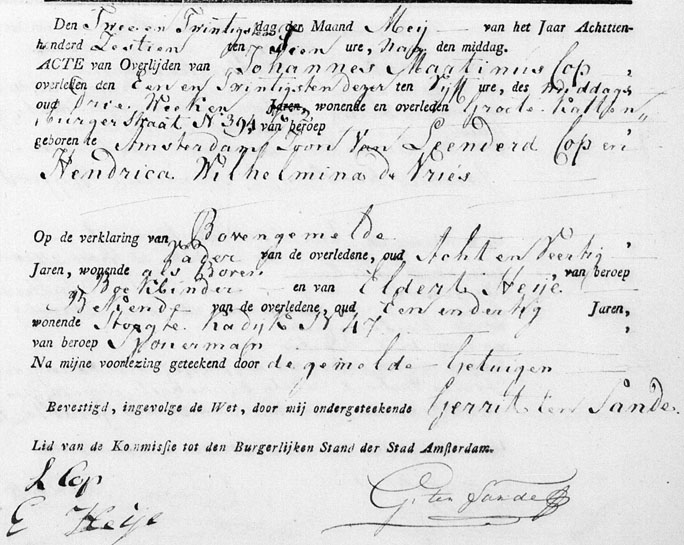 Den Twee en Twintigsten dag der Maand Meij van het Jaar Achttien-
honderd Zestien ten Tien ure, na den middag.
ACTE van Overlijden van Johannes Martinus Cop,
overleden den Een en Twintigsten dezer ten Vijf ure, des middags
oud Drie Weeken Jaren, wonende en overleden Groote Katten„
burgerstraat N 394, van beroep
geboren te Amsterdam Zoon Van Leenderd Cop en
Hendrica Wilhelmina de Vries
Op de verklaring van Bovengemelde
Vader van de overledene, oud Acht en Veertig
Jaren, wonende als Boven van beroep
Boekbinder en van Eldert Heije
Bekende van de overledene, oud Een en dertig Jaren,
wonende Hoogte Kadijk N 47,
van beroep
Na mijne voorlezing geteekend door de gemelde Getuigen
Bevestigd, ingevolge de Wet, door mij ondergeteekende Gerrit ten Sande.
Lid van de Kommissie tot den Burgerlijken Stand der Stad Amsterdam.
L Cop
G. ten Sande
E Heije